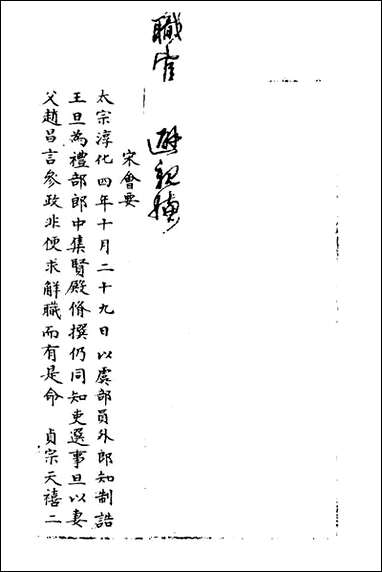 職官　避親嫌
宋會要
太宗淳化四年十月二十九日以虞部員外郎知制誥
王旦為禮部郎中集賢殿脩撰仍同知吏選事旦以妻
父趙昌言參政非便求解職而有是命　貞宗天禧二